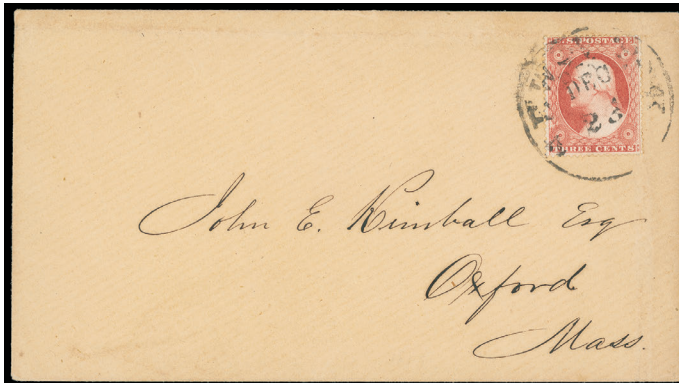 U.S. POSTAGE
DEC
THREE CENTS
John E. Kimball Esq
Oxford
Mass.